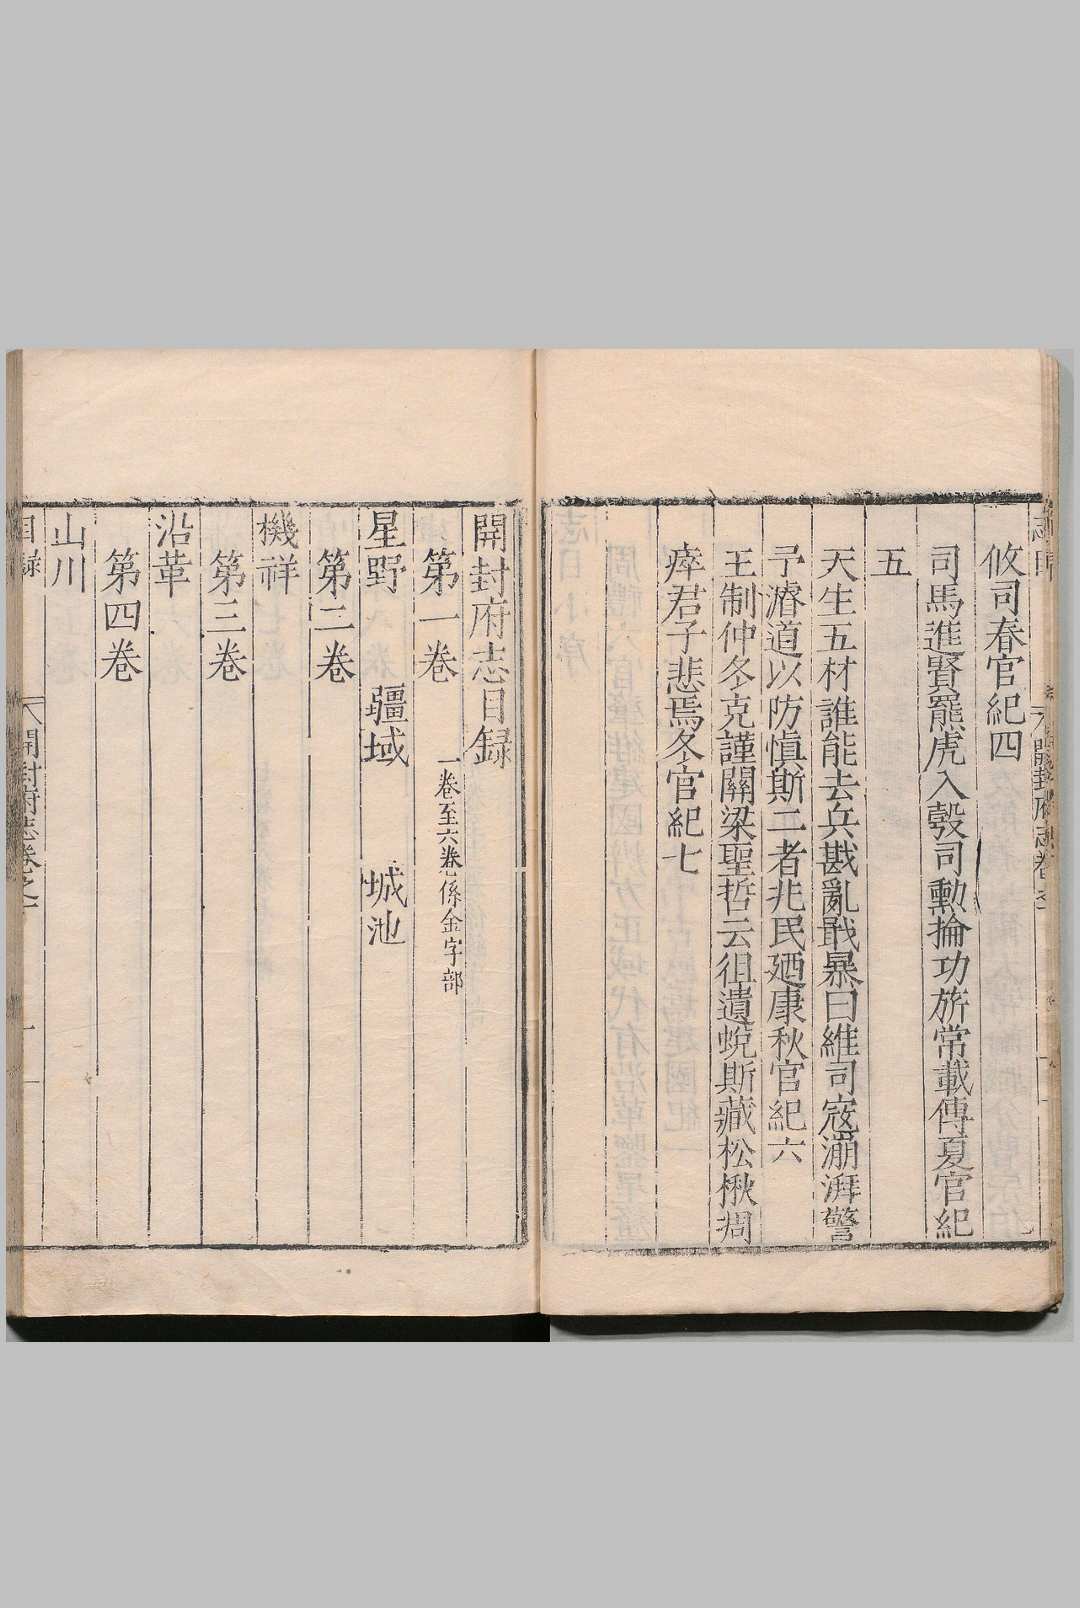 攸司春官紀四
司馬進賢羆虎入彀司勳掄功旂常載傳夏官紀
五
天生五材誰能去兵戡亂戢暴曰維司寇溯湃警
予濬道以防愼斯二者兆民廼康秋官紀六
王制仲冬克謹關梁聖哲云徂遺蛻斯藏松楸凋
瘁君子悲焉冬官紀七
開封府志目録
第一卷 一卷至六卷係金字部
星野 疆域 城池
第二卷
機祥
第三卷
沿革
第四卷
山川
目録 開封府志卷之 一